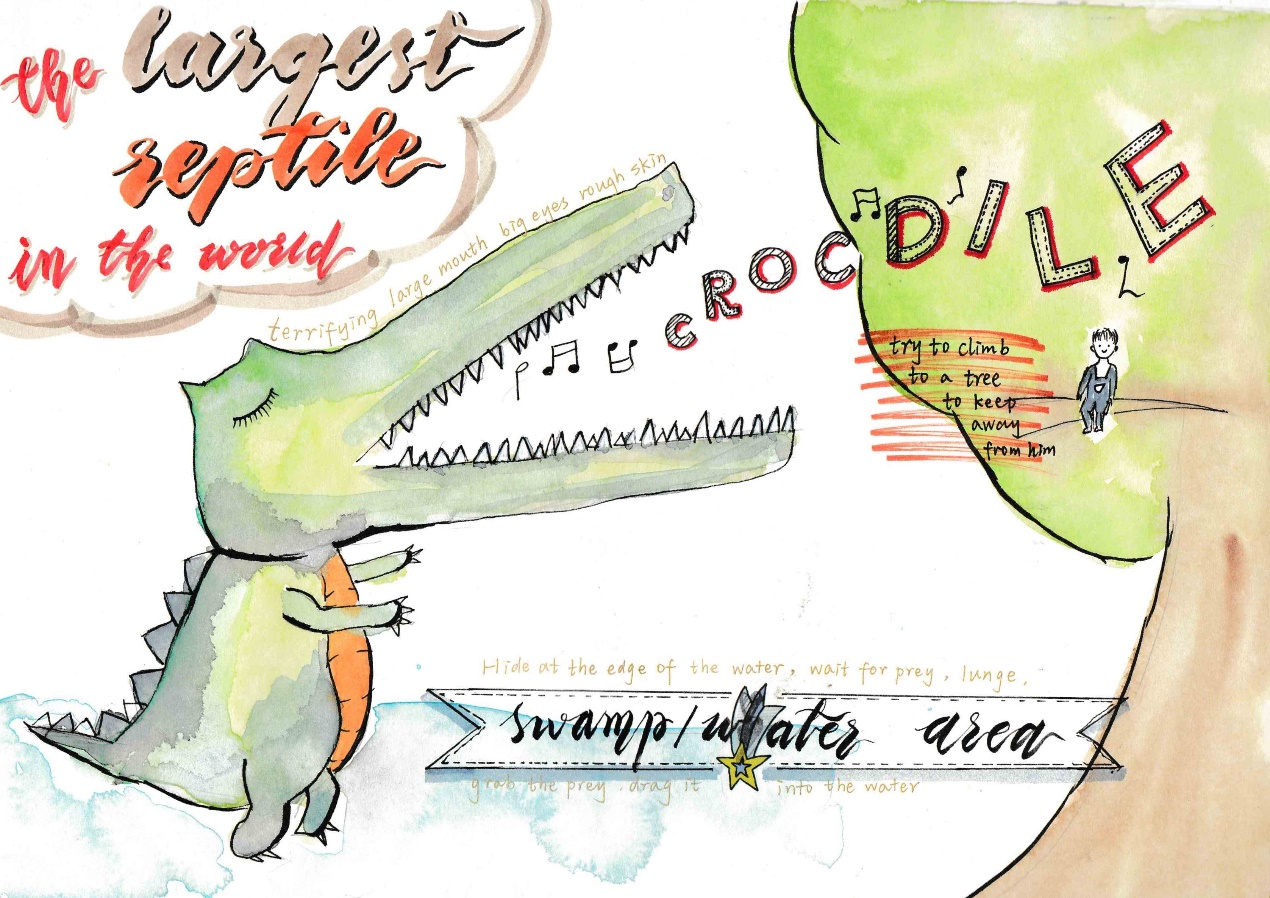 the largest
reptile
in the world
terrifying large mouth big eyes rough skin
CROCDILE
try to climb
to a tree
to keep
away
from him
Hide at the edge of the water, wait for prey, lunge,
swamp/water area
grab the prey. drag it into the water